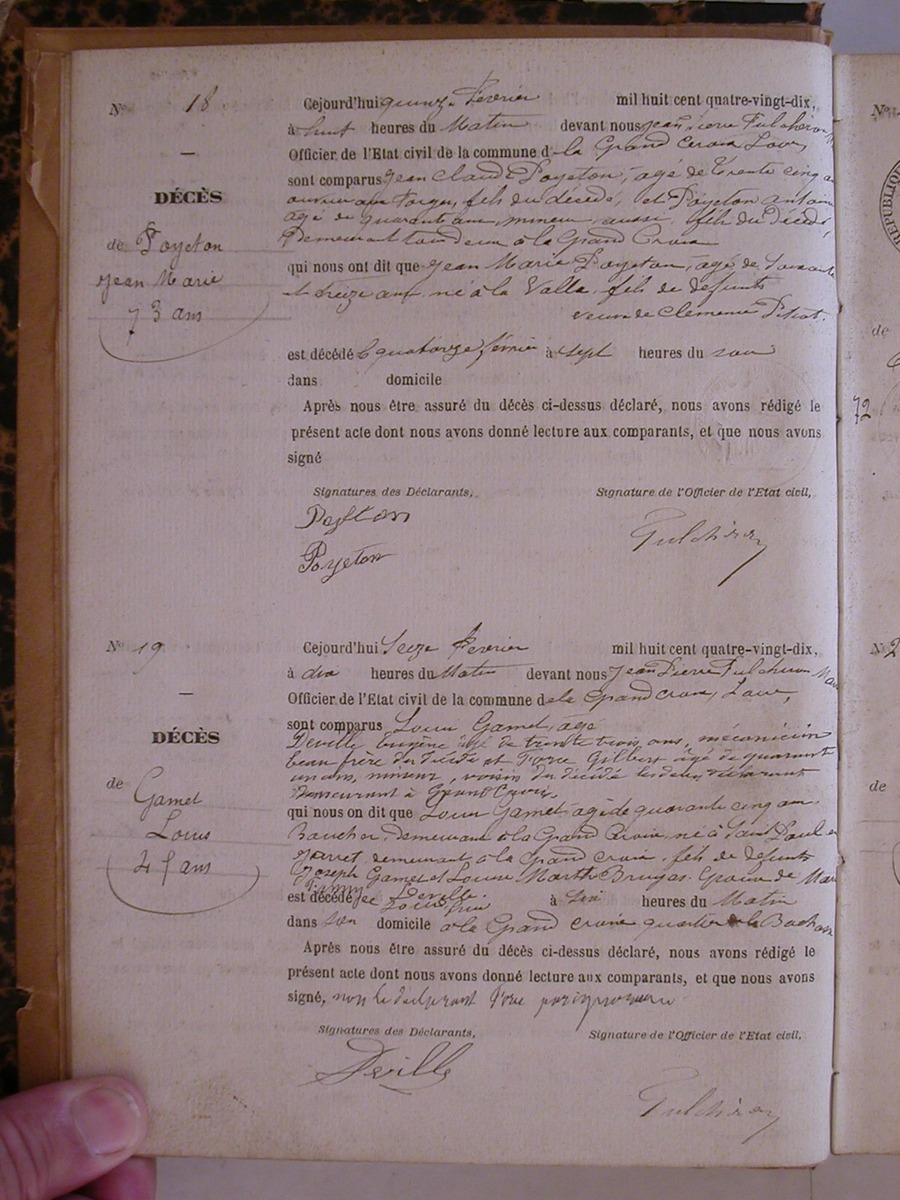 N° 18
DÉCÈS
de Poyeton
Jean Marie
73 ans
Cejourd'hui quinze Fevrier mil huit cent quatre-vingt-dix,
à huit heures du Matin devant nous Jean Pierre Fulchiron
Officier de l'Etat civil de la commune d la Grand Croix Loire
sont comparus Jean Claude Poyeton, agé de Trente cinq an
ouvrier aux Forges, fils du décédé, et Poyeton antoine
agé de quarante ans, mineur, aussi, fils du Décédé,
Demeurant tous Deux à la Grand Croix
qui nous ont dit que Jean Marie Poyeton, agé de Soixante
et treize ans, né à la Valla, fils de defunts
veuve de Clémence Pitiot.
est décédé le quatorze février à sept heures du soir
dans domicile
Après nous être assuré du décès ci-dessus déclaré, nous avons rédigé le
présent acte dont nous avons donné lecture aux comparants, et que nous avons
signé
Signatures des Déclarants, Signature de l'Officier de l'Etat civil,
Poyeton
Poyeton
Fulchiron
N° 19
DÉCÈS
de Gamet
Louis
45 ans
Cejourd'hui Seize Fevrier mil huit cent quatre-vingt-dix,
à dix heures du Matin devant nous Jean Pierre Fulchiron Mai
Officier de l'Etat civil de la commune de la Grand croix, Loire,
sont comparus Louis Gamet, agé
Deville Eugène agé de trente trois ans, mécanicien
beau frère du décédé et Force Gilbert agé de quarante
un ans, mineur, voisin du décédé les deux déclarant
Demeurant à Grand Croix
qui nous on dit que Louis Gamet, agé de quarante cinq ans
Demeurant à la Grand Croix, né à Saint Paul en
Jarret, demeurant à la Grand croix, fils de defunts
Joseph Gamet et Louise Marthe Bruyas. Epoux de Mar
Deville
est décédé à six heures du Matin
dans son domicile à la Grand croix quartier de la Bachasse
Après nous être assuré du décès ci-dessus déclaré, nous avons rédigé le
présent acte dont nous avons donné lecture aux comparants, et que nous avons
signé, non le déclarant Force
Signatures des Déclarants, Signature de l'Officier de l'Etat civil,
Deville
Fulchiron
N°
de
72
N° 2
de